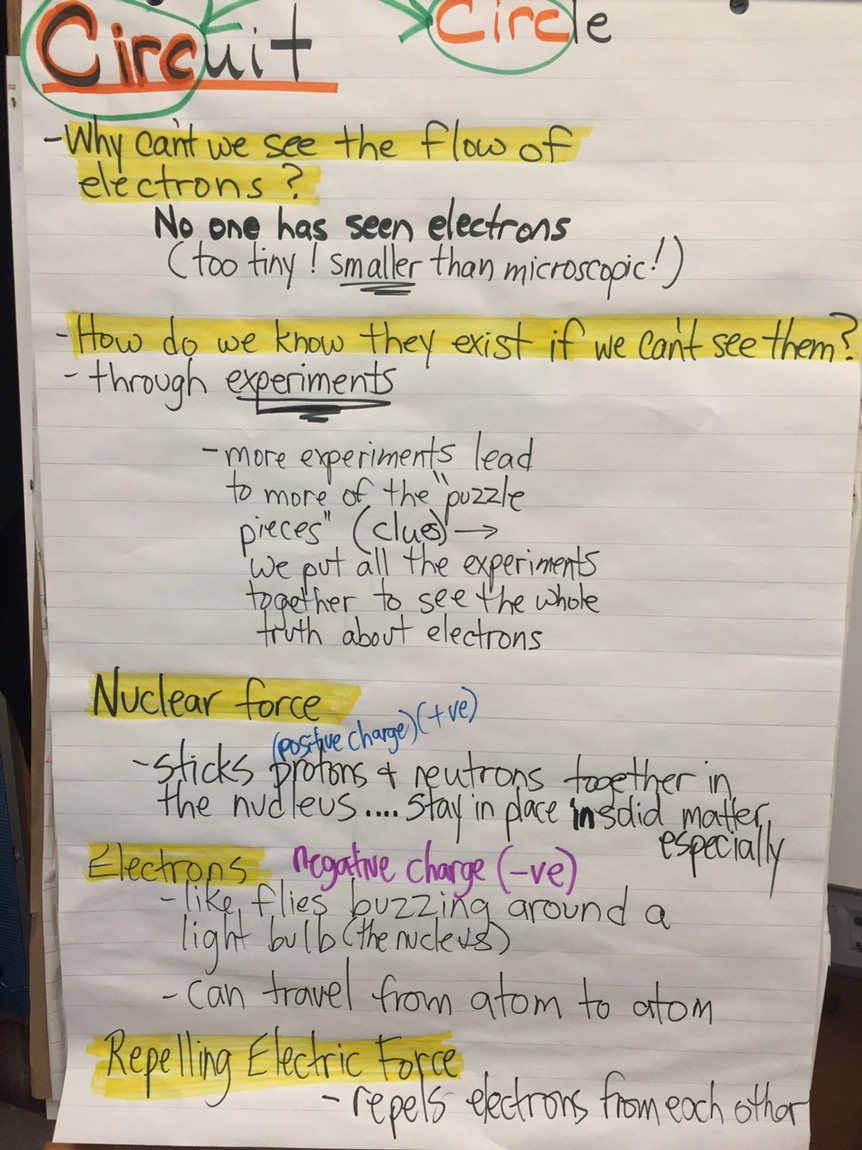 Circuit Circle
- Why can't we see the flow of
electrons?
No one has seen electrons
(too tiny! smaller than microscopic!)
- How do we know they exist if we can't see them?
- through experiments
- more experiments lead
to more of the "puzzle
pieces" (clues) →
we put all the experiments
together to see the whole
truth about electrons
Nuclear force
(positive charge) (+ve)
- sticks protons + neutrons together in
the nucleus .... stay in place in solid matter,
especially
Electrons negative charge (-ve)
- like flies buzzing around a
light bulb (the nucleus)
- can travel from atom to atom
Repelling Electric Force
- repels electrons from each other